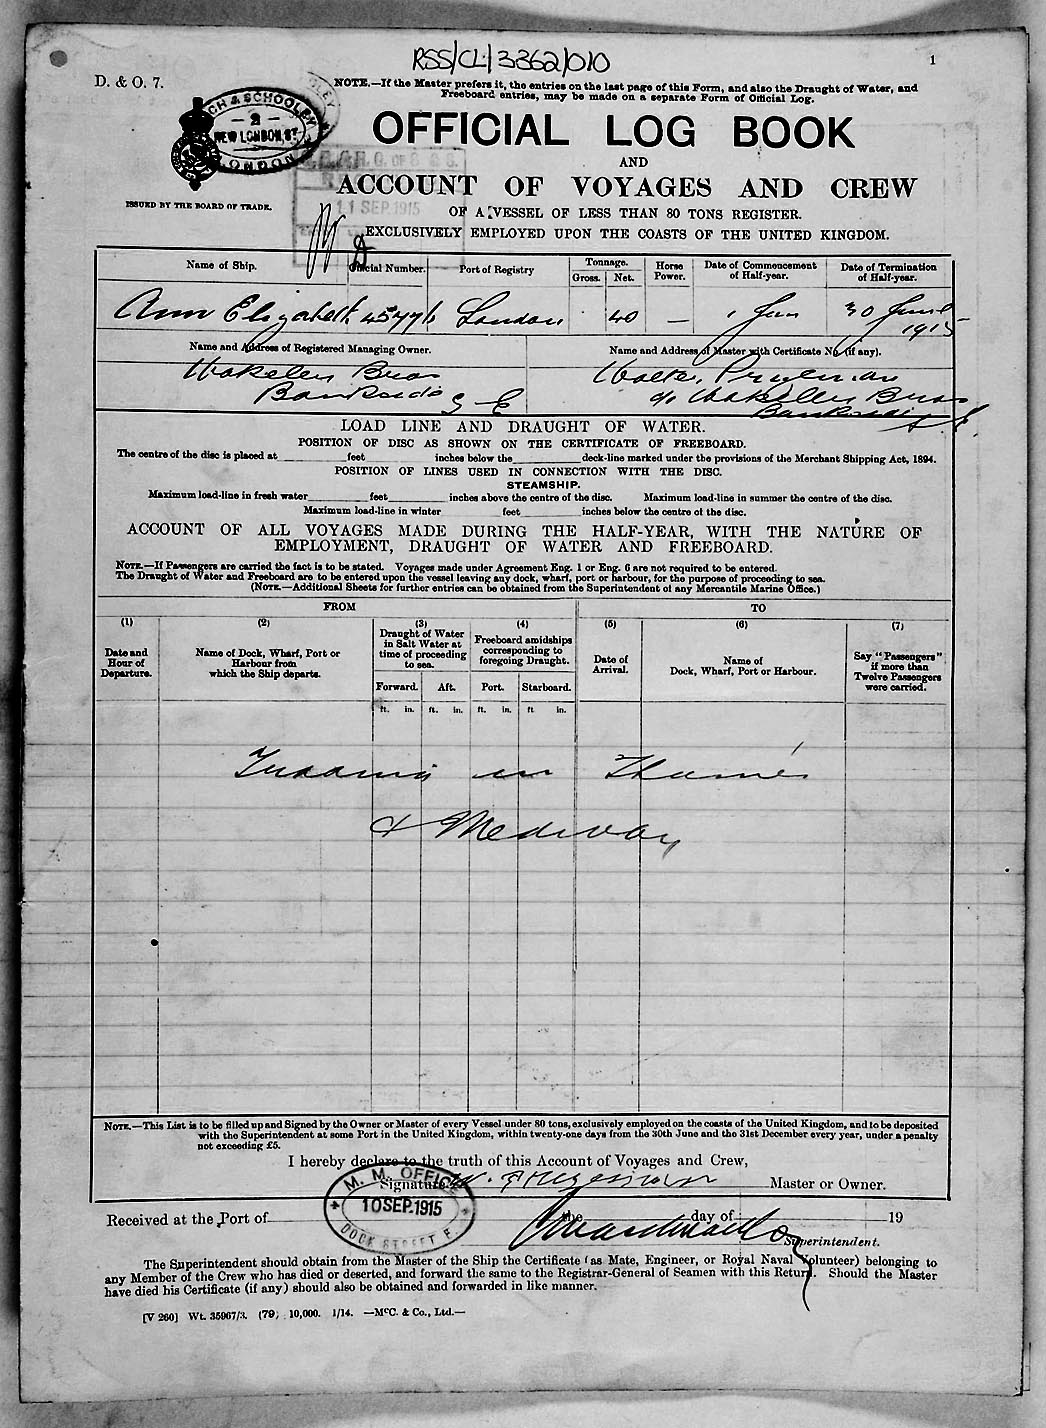 RSS/CL/3862/010
1
D. & O. 7.
NOTE.—If the Master prefers it, the entries on the last page of this Form, and also the Draught of Water, and
Freeboard entries, may be made on a separate Form of Official Log.
CH & SCHOOLEY
2
NEW LONDON ST
LONDON
OFFICIAL LOG BOOK
AND
ACCOUNT OF VOYAGES AND CREW
11 SEP. 1915
ISSUED BY THE BOARD OF TRADE.
OF A VESSEL OF LESS THAN 80 TONS REGISTER.
EXCLUSIVELY EMPLOYED UPON THE COASTS OF THE UNITED KINGDOM.
Name of Ship. Official Number. Port of Registry Tonnage. Gross. Net. Horse Power. Date of Commencement of Half-year. Date of Termination of Half-year.
Ann Elizabeth 45776 London 40 — 1 Jan 30 June 1915
Name and Address of Registered Managing Owner. Name and Address of Master with Certificate No. (if any).
Wakeley Bros Walter
Bankside S E c/o Wakeley Bros
Bankside S E.
LOAD LINE AND DRAUGHT OF WATER.
POSITION OF DISC AS SHOWN ON THE CERTIFICATE OF FREEBOARD.
The centre of the disc is placed at feet inches below the deck-line marked under the provisions of the Merchant Shipping Act, 1894.
POSITION OF LINES USED IN CONNECTION WITH THE DISC.
STEAMSHIP.
Maximum load-line in fresh water feet inches above the centre of the disc. Maximum load-line in summer the centre of the disc.
Maximum load-line in winter feet inches below the centre of the disc.
ACCOUNT OF ALL VOYAGES MADE DURING THE HALF-YEAR, WITH THE NATURE OF
EMPLOYMENT, DRAUGHT OF WATER AND FREEBOARD.
NOTE.—If Passengers are carried the fact is to be stated. Voyages made under Agreement Eng. 1 or Eng. 6 are not required to be entered.
The Draught of Water and Freeboard are to be entered upon the vessel leaving any dock, wharf, port or harbour, for the purpose of proceeding to sea.
(NOTE.—Additional Sheets for further entries can be obtained from the Superintendent of any Mercantile Marine Office.)
FROM TO
(1) (2) (3) (4) (5) (6) (7)
Date and Hour of Departure. Name of Dock, Wharf, Port or Harbour from which the Ship departs. Draught of Water in Salt Water at time of proceeding to sea. Freeboard amidships corresponding to foregoing Draught. Date of Arrival. Name of Dock, Wharf, Port or Harbour. Say "Passengers" if more than Twelve Passengers were carried.
Forward. Aft. Port. Starboard.
ft. in. ft. in. ft. in. ft. in.
Trading in Thames
& Medway
NOTE.—This List is to be filled up and Signed by the Owner or Master of every Vessel under 80 tons, exclusively employed on the coasts of the United Kingdom, and to be deposited
with the Superintendent at some Port in the United Kingdom, within twenty-one days from the 30th June and the 31st December every year, under a penalty
not exceeding £5.
I hereby declare to the truth of this Account of Voyages and Crew,
Signature W. Master or Owner.
M. M. OFFICE
10 SEP. 1915
DOCK STREET E.
Received at the Port of the day of 19
Superintendent.
The Superintendent should obtain from the Master of the Ship the Certificate (as Mate, Engineer, or Royal Naval Volunteer) belonging to
any Member of the Crew who has died or deserted, and forward the same to the Registrar-General of Seamen with this Return. Should the Master
have died his Certificate (if any) should also be obtained and forwarded in like manner.
[V 260] Wt. 35967/3. (79) 10,000. 1/14. —McC. & Co., Ltd.—